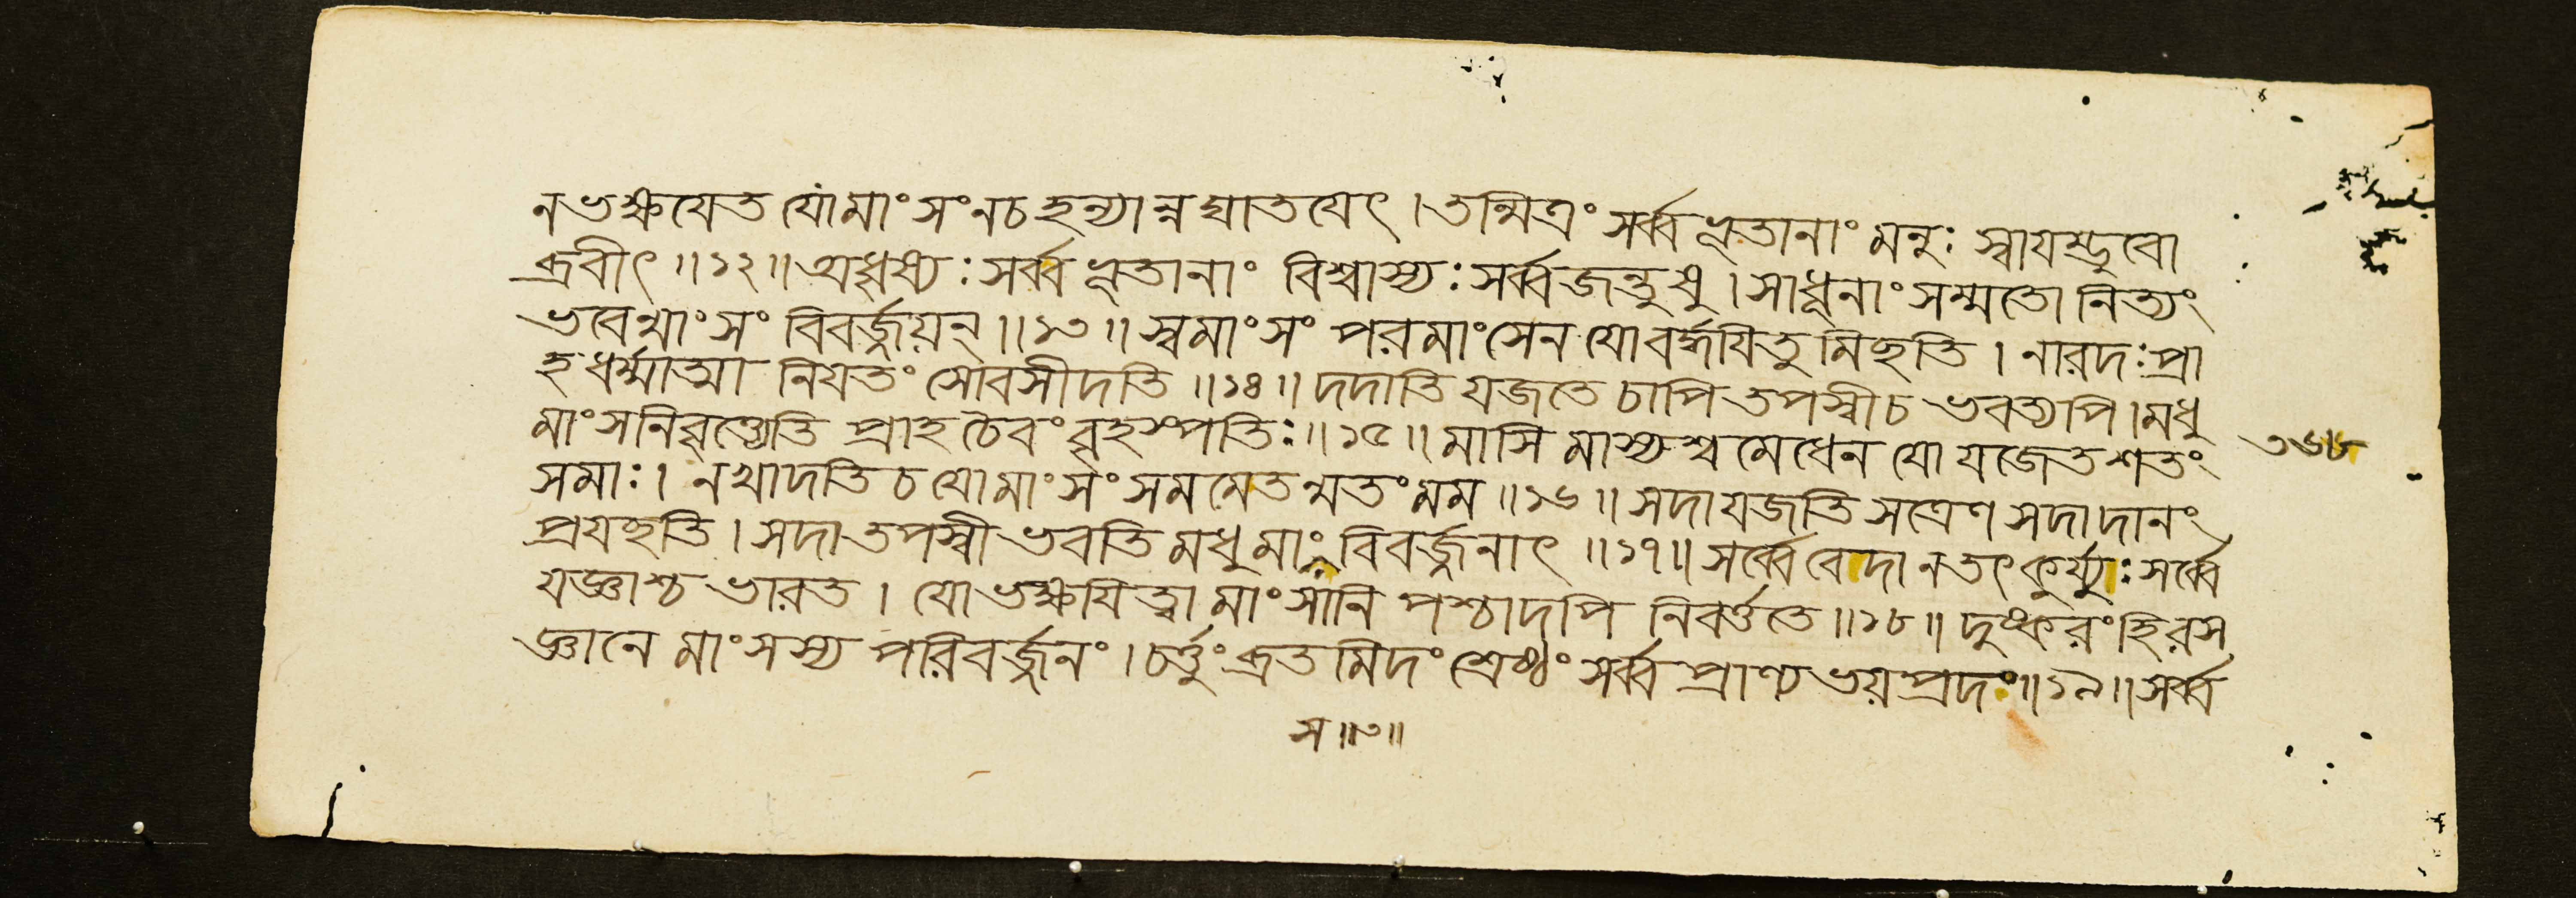 ন ভক্ষযেত যো মাংসং ন চ হন্যান্ন ঘাতযেৎ । তন্মিত্রং সর্ব্বভূতানাং মনুঃ স্বাযম্ভুবো
ব্রবীৎ ॥১২॥ অধৃষ্যঃ সর্ব্বভূতানাং বিশ্বাস্যঃ সর্ব্বজন্তুষু । সাধূনাং সম্মতো নিত্যং
ভবেন্মাংসং বিবর্জ্জয়ন্ ॥১৩॥ স্বমাংসং পরমাংসেন যো বর্দ্ধযিতুমিছতি । নারদঃ প্রা
হ ধর্ম্মাত্মা নিযতং সোবসীদতি ॥১৪॥ দদাতি যজতে চাপি তপস্বী চ ভবত্যপি । মধু
মাংসনিবৃত্ত্যেতি প্রাহ চৈবং বৃহস্পতিঃ ॥১৫॥ মাসি মাস্যশ্বমেধেন যো যজেত শতং
৩৬৮
সমাঃ । ন খাদতি চ যো মাংসং সমমেতন্মতং মম ॥১৬॥ সদা যজতি সত্রেণ সদা দানং
প্রযছতি । সদা তপস্বী ভবতি মধুমাংস বিবর্জ্জনাৎ ॥১৭॥ সর্ব্বে বেদা ন তৎ কুর্য্যুঃ সর্ব্বে
যজ্ঞাশ্চ ভারত । যো ভক্ষযিত্বা মাংসানি পশ্চাদপি নিবর্ত্ততে ॥১৮॥ দুষ্করং হি রস
জ্ঞানে মাংসস্য পরিবর্জ্জনং । চর্ত্তুং ব্রতমিদং শ্রেষ্ঠং সর্ব্বপ্রাণ্যভয়প্রদং ॥১৯॥ সর্ব্ব
স ॥৩॥